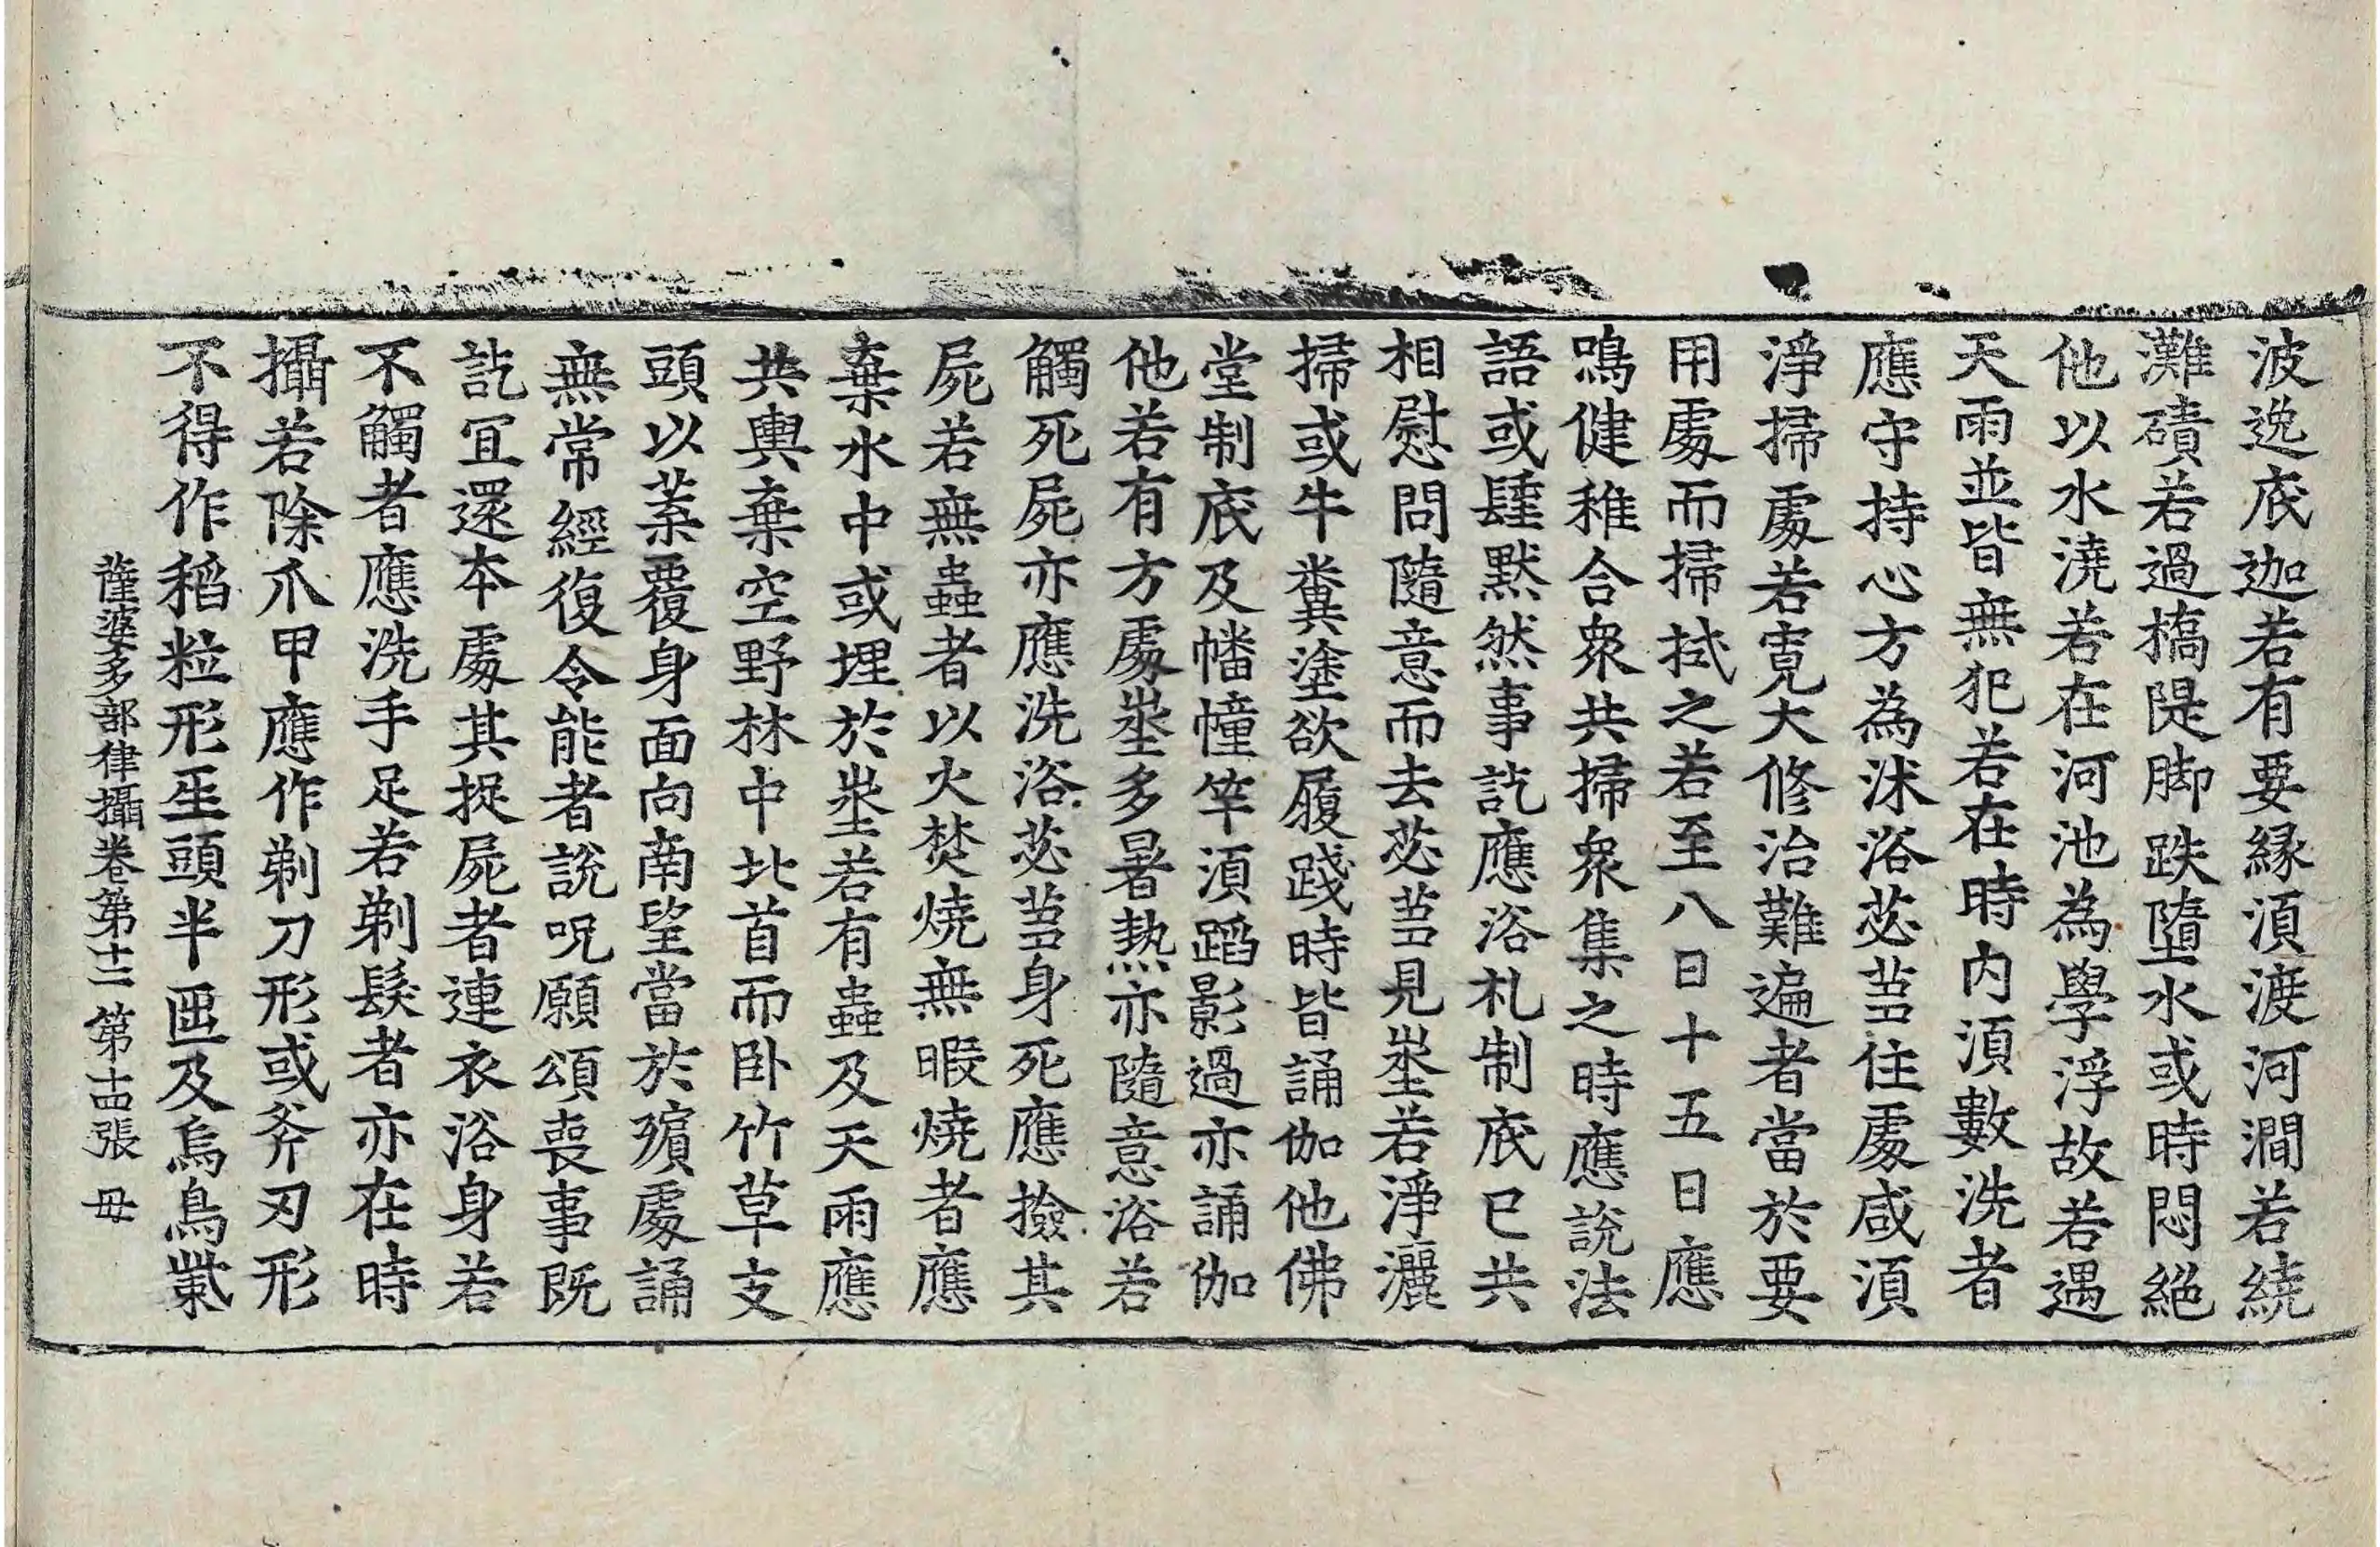 波逸底迦若有要縁湏渡河澗若繞
灘磧若過橋隄脚跌墮水或時悶絕
他以水澆若在河池為學浮故若遇
天雨並皆無犯若在時內湏數洗者
應守持心方為沐浴苾芻住處咸湏
淨掃處若寬大修治難遍者當於要
用處而掃拭之若至八日十五日應
鳴健稚合衆共掃衆集之時應說法
語或肆默然事訖應浴札制底已共
相慰問隨意而去苾芻見塋若淨灑
掃或牛糞塗欲履踐時皆誦伽他佛
堂制底及幡幢竿湏蹈影過亦誦伽
他若有方處塋多暑熱亦隨意浴若
觸死屍亦應洗浴苾芻身死應撿其
屍若無蟲者以火焚燒無暇燒者應
棄水中或埋於塋若有蟲及天雨應
共輿棄空野林中北首而卧竹草支
頭以葉覆身面向南望當於殯處誦
無常經復令能者說呪願頌喪事既
訖冝還本處其捉屍者連衣浴身若
不觸者應洗手足若剃髮者亦在時
攝若除爪甲應作剃刀形或斧刃形
不得作稻粒形𤯔頭半匝及烏鳥觜
薩婆多部律攝卷第十二　第十四張　毋